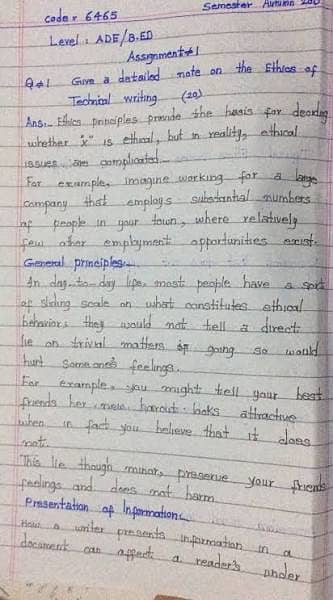 Semester Autumn
code = 6465
Level : ADE/B.ED
Assignment#1
Q#1 Give a detailed note on the Ethics of
Technial writing (20)
Ans:- Ethics principles provide the basis for deciding
whether "x" is ethical, but in reality, ethical
issues are complicated.-
For example, imagine working for a large
company that employs substantial numbers
of people in your town, where relatively
few other employment opportunities exist.
General principles:-
In day-to-day life, most people have a sort
of sliding scale on what constitutes ethical
behavior, they would not tell a direct
lie on trivial matters if going so would
hurt someone's feelings.
For example, you might tell your best
friends her new haircut looks attractive
when in fact you believe that it does
not.
This lie though minor, preserve your friends
feelings and does not harm
Presentation of Information:-
How a writer presents information in a
document can affect a reader's under